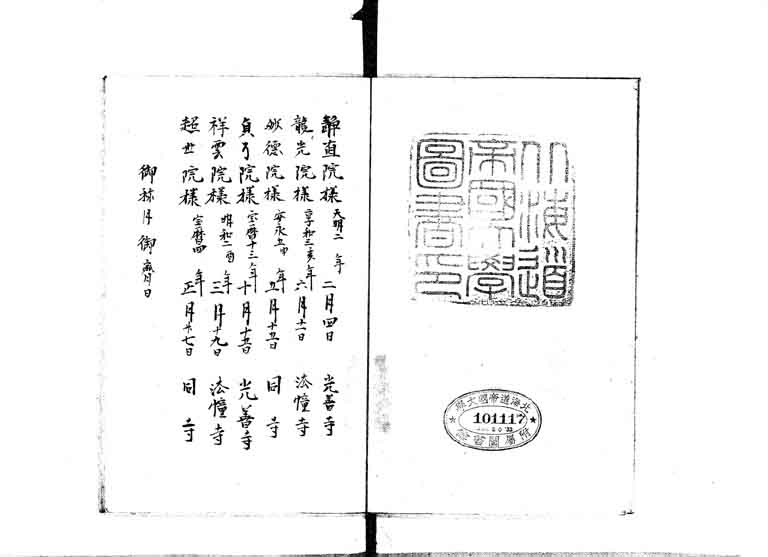 北海道
帝國大學
圖書印
北海道帝國大學
101117
附屬圖書館
靜直院様 天明二年 二月四日 光善寺
龍光院様 享和三亥年 六月十一日 法幢寺
妙德院様 安永五申年 五月十五日 同寺
貞了院様 宝暦十三年 十月十五日 光善寺
祥雲院様 明和二酉年 三月十九日 法幢寺
超世院様 宝暦四年 正月廿七日 同寺
御祢月御齋日